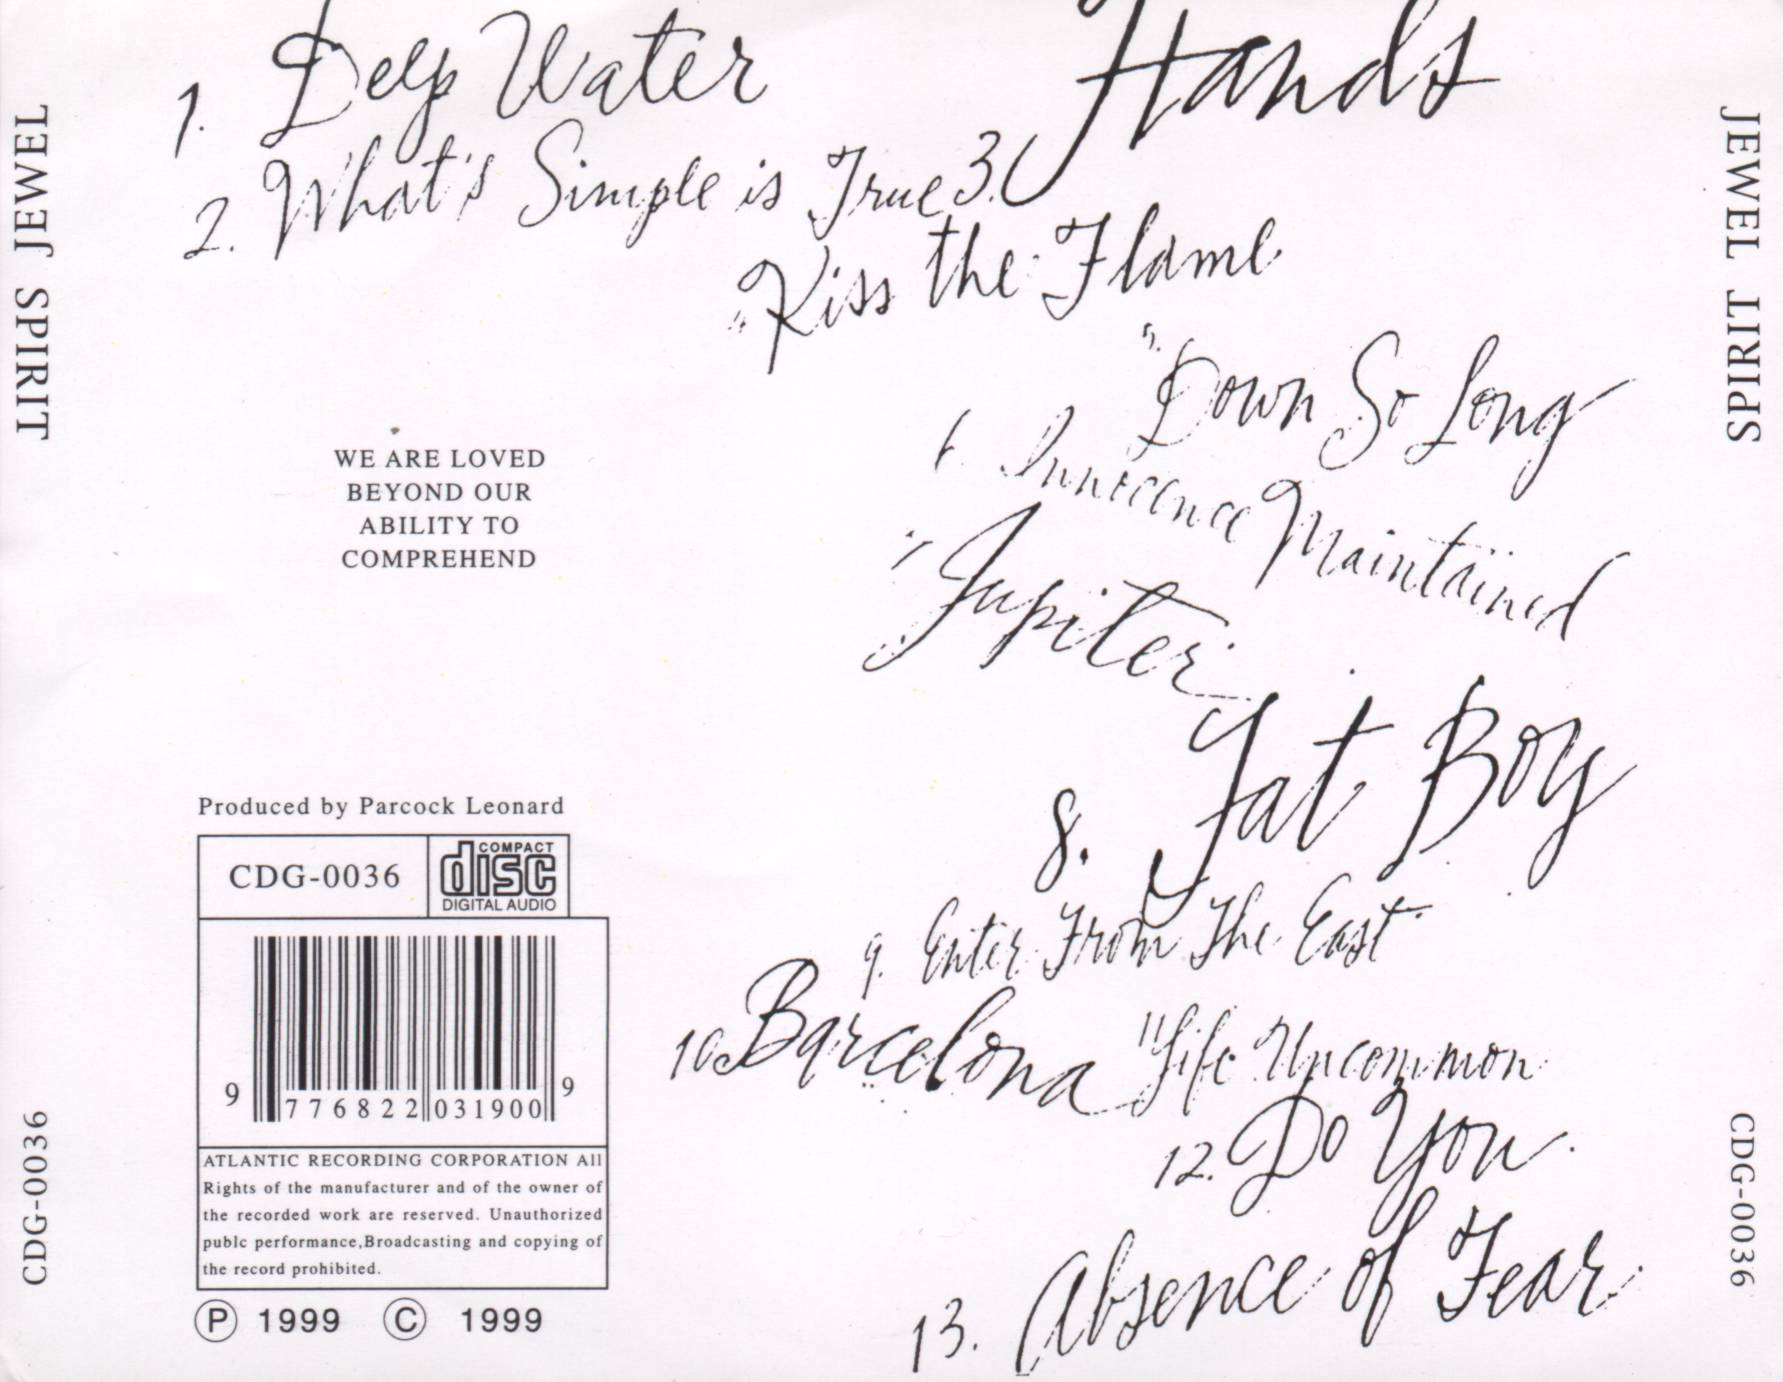 1. Deep Water
2. What's Simple is True
3. Hands
4. Kiss the Flame
5. Down So Long
6. Innocence Maintained
7. Jupiter
8. Fat Boy
9. Enter From The East
10. Barcelona
11. Life Uncommon
12. Do You
13. Absence of Fear
WE ARE LOVED
BEYOND OUR
ABILITY TO
COMPREHEND
Produced by Parcock Leonard
CDG-0036
COMPACT
disc
DIGITAL AUDIO
9 776822 031900 9
ATLANTIC RECORDING CORPORATION All
Rights of the manufacturer and of the owner of
the recorded work are reserved. Unauthorized
publc performance,Broadcasting and copying of
the record prohibited.
Ⓟ 1999 © 1999
SPIRIT JEWEL
CDG-0036
JEWEL SPIRIT
CDG-0036